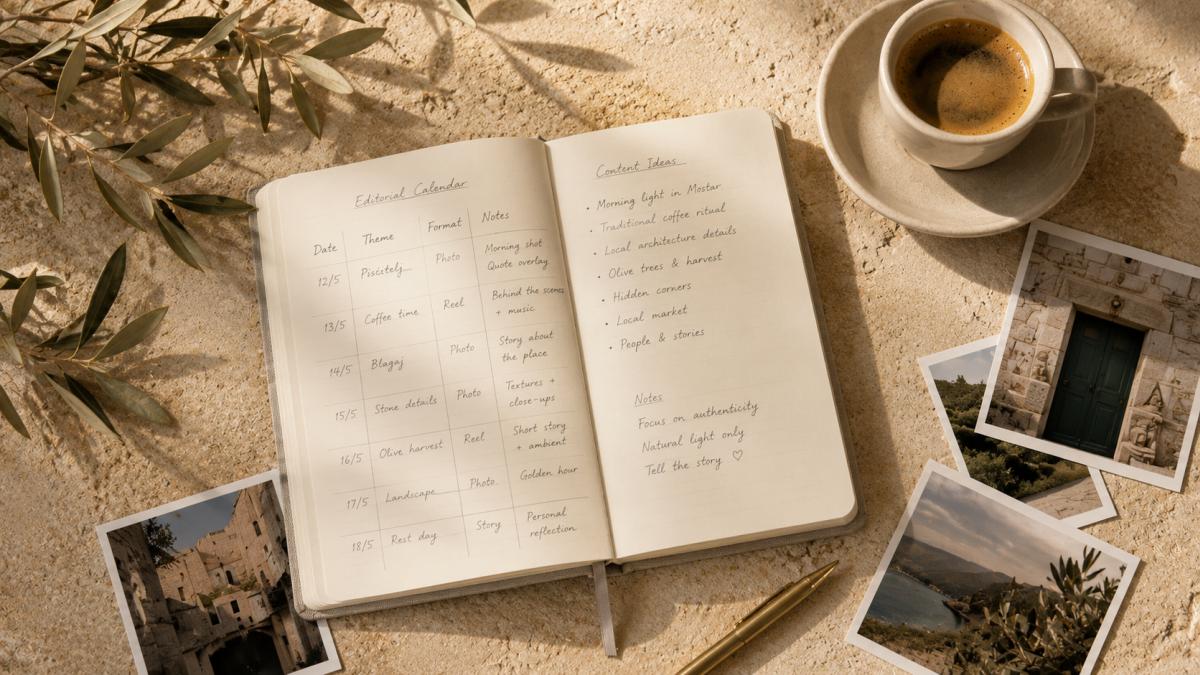 Editorial Calendar
Date Theme Format Notes
12/5 Photo Morning shot
Quote overlay
13/5 Coffee time Reel Behind the scenes
+ music
14/5 Blagaj Photo Story about
the place
15/5 Stone details Photo Textures +
close-ups
16/5 Olive harvest Reel Short story
+ ambient
17/5 Landscape Photo Golden hour
18/5 Rest day Story Personal
reflection
Content Ideas
• Morning light in Mostar
• Traditional coffee ritual
• Local architecture details
• Olive trees & harvest
• Hidden corners
• Local market
• People & stories
Notes
Focus on authenticity
Natural light only
Tell the story ♡